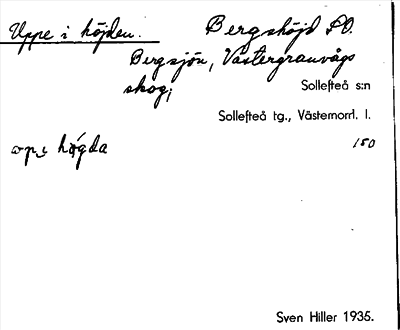 Uppe i höjden. Bergshöjd SO.
Bergsjön, Västergranvågs
skog;
Sollefteå s:n
Sollefteå tg., Västernorrl. l.
150
Sven Hiller 1935.